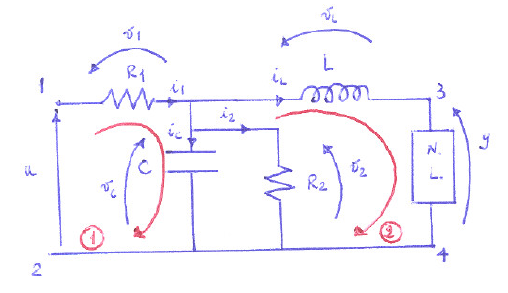 v1
vL
R1
L
1
i1
iL
3
i2
ic
u
vc
C
R2
v2
N.
L.
y
1
2
2
4